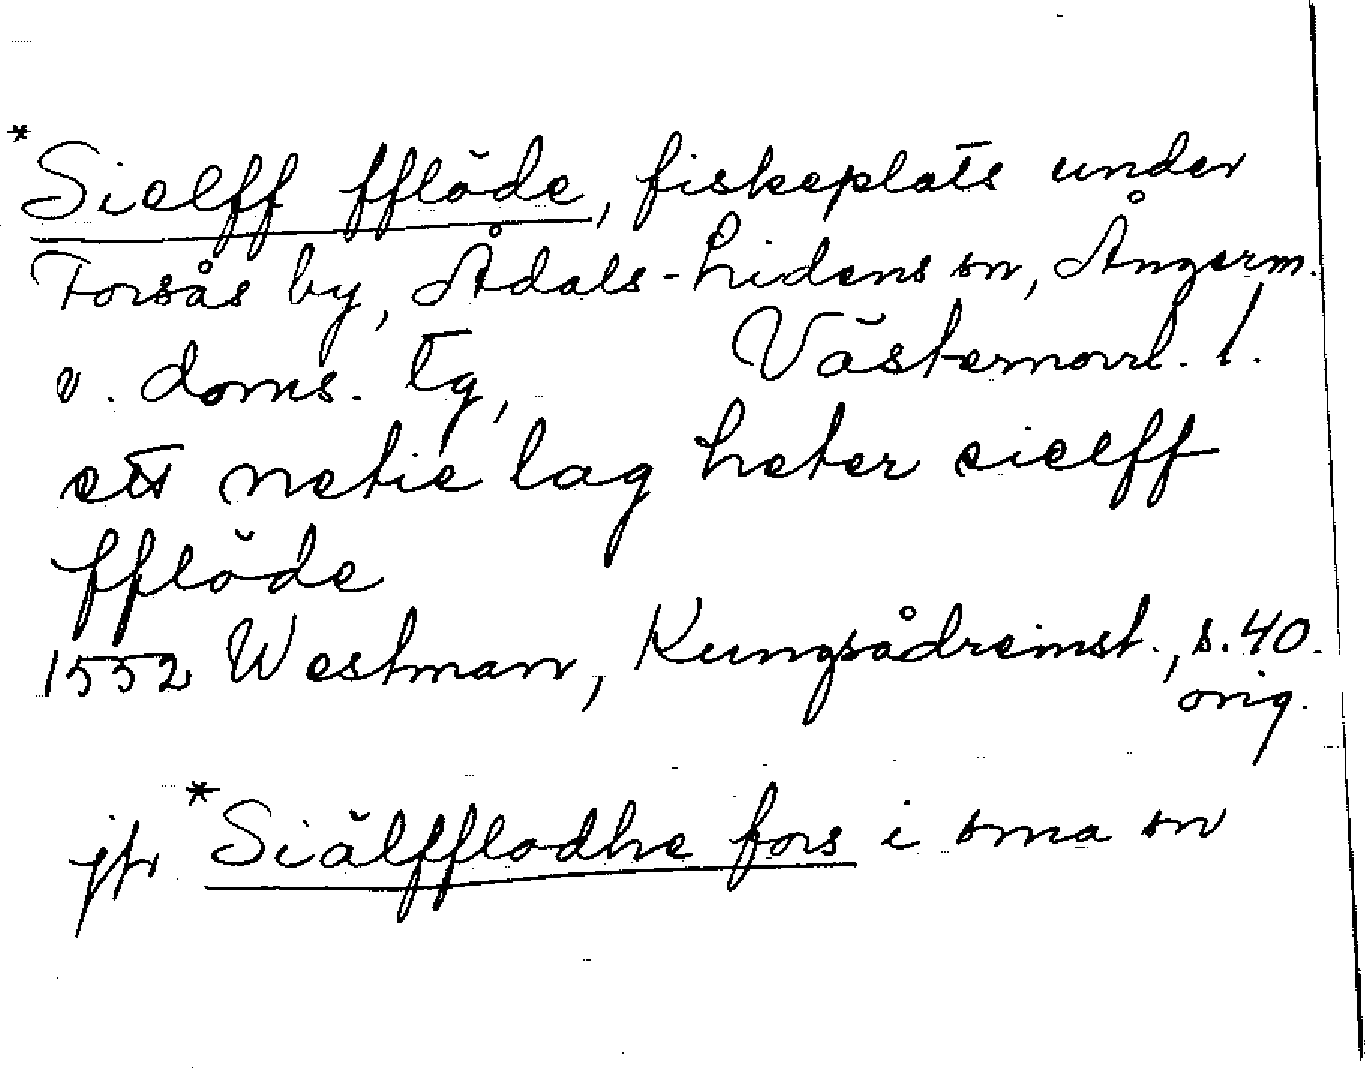 *Sielff fflöde, fiskeplats under
Forsås by, Ådals-Lidens sn, Ångerm.
v. doms. tg, Västernorrl. l.
ett netie lag heter sielff
fflöde
1552 Westman, Kungsådreinst., s. 40.
orig.
jfr *Siälfflodhe fors i sma sn